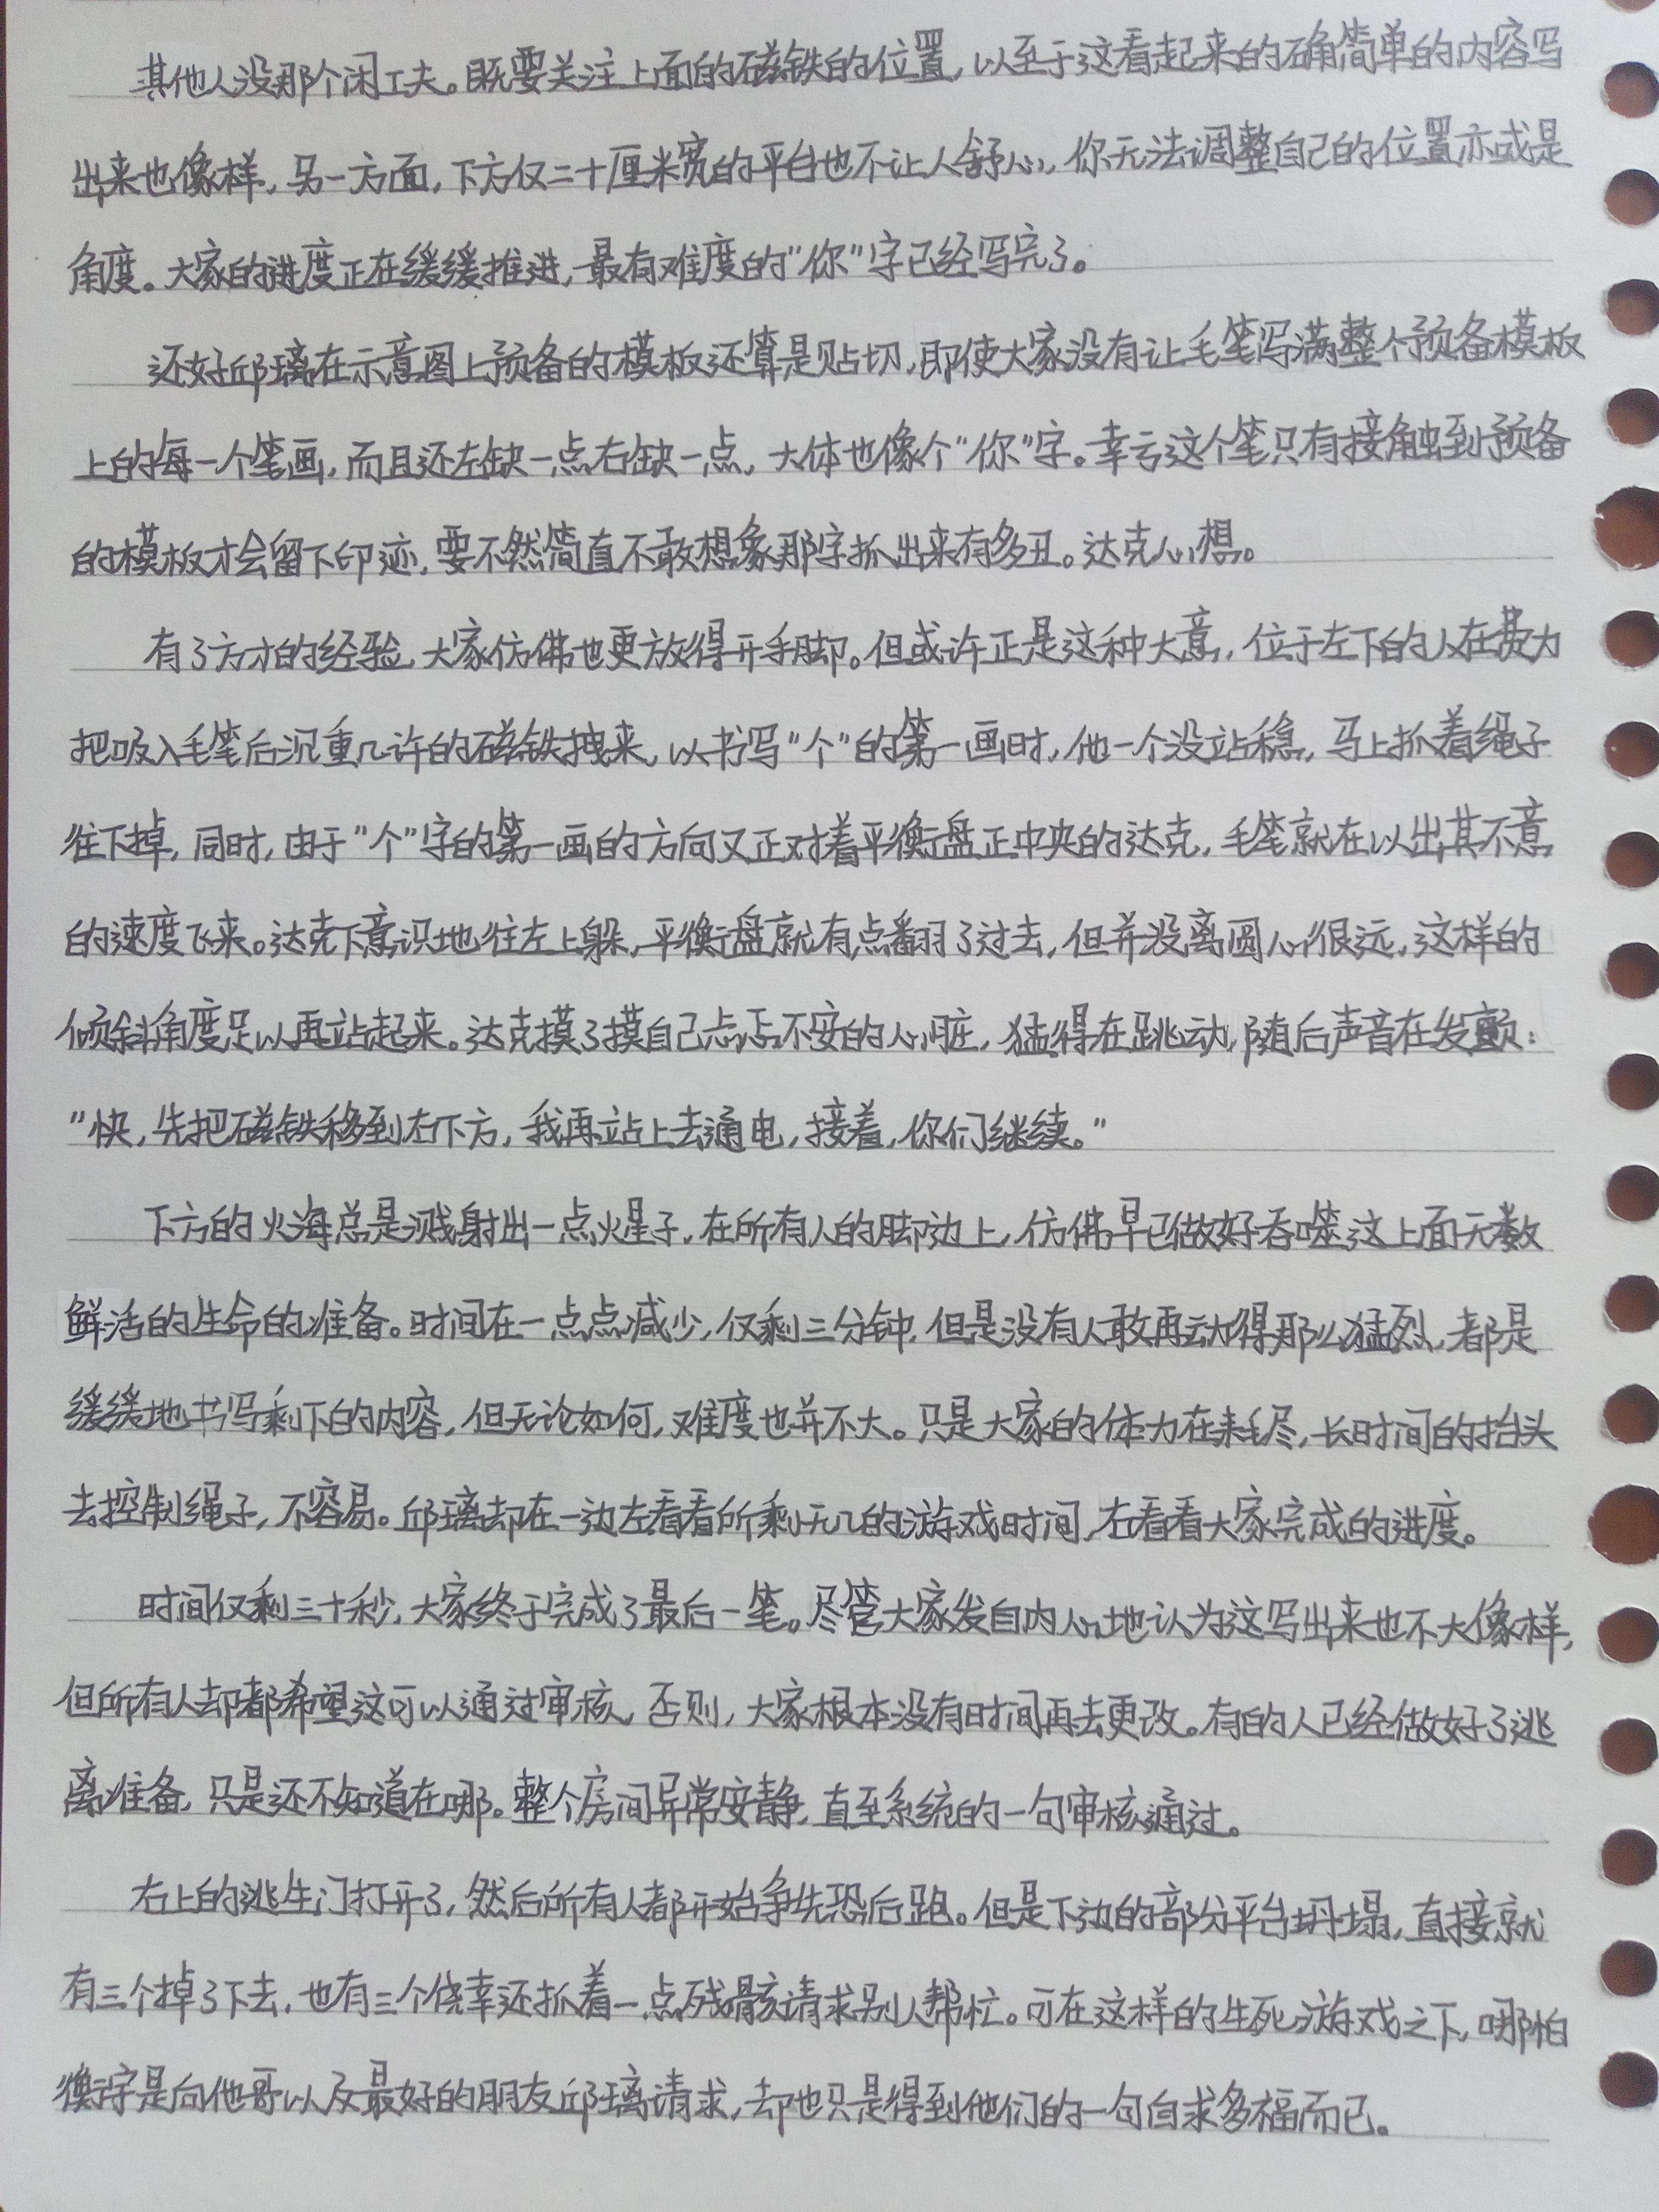 其他人没那个闲工夫。既要关注上面的磁铁的位置，以至于这看起来的确简单的内容写
出来也像样，另一方面，下方仅二十厘米宽的平台也不让人舒心，你无法调整自己的位置亦或是
角度。大家的进度正在缓缓推进，最有难度的“你”字已经写完了。
还好邱璃在示意图上预备的模板还算是贴切，即使大家没有让毛笔写满整个预备模板
上的每一个笔画，而且还左缺一点右缺一点，大体也像个“你”字。幸亏这个笔只有接触到预备
的模板才会留下印迹，要不然简直不敢想象那字抓出来有多丑。达克心想。
有了方才的经验，大家仿佛也更放得开手脚。但或许正是这种大意，位于左下的人在费力
把吸入毛笔后沉重几许的磁铁拽来，以书写“个”的第一画时，他一个没站稳，马上抓着绳子
往下掉，同时，由于“个”字的第一画的方向又正对着平衡盘正中央的达克，毛笔就在以出其不意
的速度飞来。达克下意识地往左上躲，平衡盘就有点翻了过去，但并没离圆心很远，这样的
倾斜角度足以再站起来。达克摸了摸自己忐忑不安的心脏，猛得在跳动，随后声音在发颤：
“快，先把磁铁移到右下方，我再站上去通电，接着，你们继续。”
下方的火海总是溅射出一点火星子，在所有人的脚边上，仿佛早已做好吞噬这上面无数
鲜活的生命的准备。时间在一点点减少，仅剩三分钟，但是没有人敢再动得那么猛烈，都是
缓缓地书写剩下的内容，但无论如何，难度也并不大。只是大家的体力在耗尽，长时间的抬头
去控制绳子，不容易。邱璃却在一边左看看所剩无几的游戏时间，右看看大家完成的进度。
时间仅剩三十秒，大家终于完成了最后一笔。尽管大家发自内心地认为这写出来也不大像样，
但所有人却都希望这可以通过审核，否则，大家根本没有时间再去更改。有的人已经做好了逃
离准备，只是还不知道在哪。整个房间异常安静，直至系统的一句审核通过。
右上的逃生门打开了，然后所有人都开始争先恐后跑。但是下边的部分平台坍塌，直接就
有三个掉了下去，也有三个侥幸还抓着一点残骸请求别人帮忙。可在这样的生死游戏之下，哪怕
衡宇是向他哥以及最好的朋友邱璃请求，却也只是得到他们的一句自求多福而已。